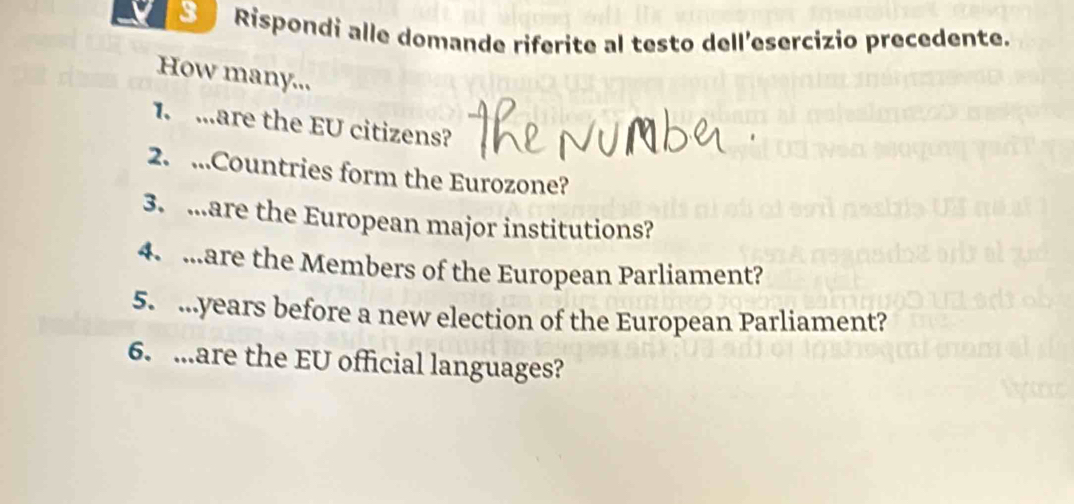 3 Rispondi alle domande riferite al testo dell'esercizio precedente.
How many...
1. ...are the EU citizens? the NUMber.
2. ...Countries form the Eurozone?
3. ...are the European major institutions?
4. ...are the Members of the European Parliament?
5. ...years before a new election of the European Parliament?
6. ...are the EU official languages?